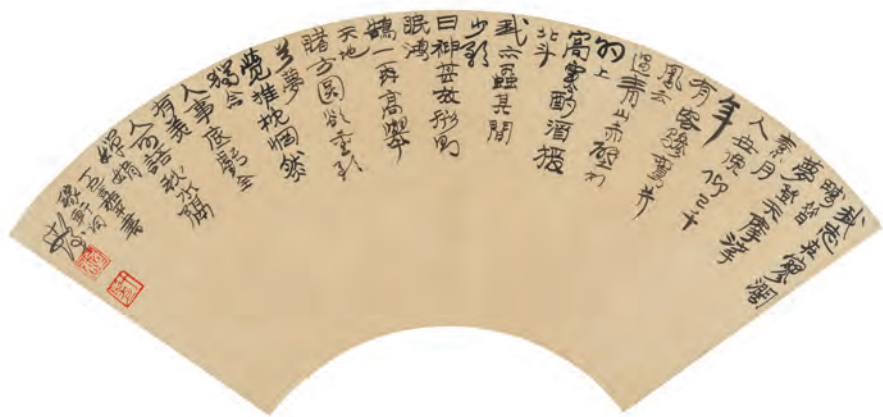 我志在寥濶
疇昔
夢登天摩挲
素月
人世俛仰已千
年
有客驂鸞并
鳳云
遇青山赤壁相
約上
高寒酌酒援
北斗
我亦蝨其間
少歌
曰神甚放形則
眠鴻
鵠一再高舉
天地
睹方圓欲重歌
兮夢
覺推枕惘然
獨念
人事底虧全
有美
人可語秋水隔
嬋娟
稼軒詞